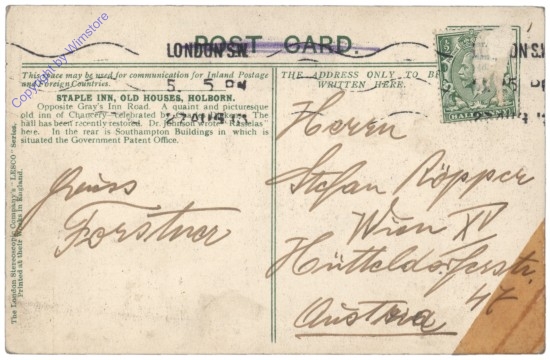 Copyright by Wimstore
POST CARD.
LONDON S.W.
5. 5 PM
22 AUG
This space may be used for communication for Inland Postage
and Foreign Countries.
THE ADDRESS ONLY TO BE
WRITTEN HERE.
HALF
STAPLE INN, OLD HOUSES, HOLBORN.
Opposite Gray's Inn Road. A quaint and picturesque
old inn of Chancery celebrated by
The
hall has been recently restored. Dr. Johnson wrote "Rasselas"
here. In the rear is Southampton Buildings in which is
situated the Government Patent Office.
The London Stereoscopic Company's "LESCO" Series.
Printed at their Works in England.
Gruss
Forstner
Herrn
Stefan Röpper
Wien XV
Hütteldorferstr.
47
Austria